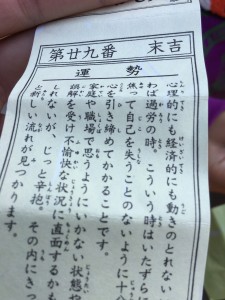 第廿九番 末吉
運勢
心理的にも経済的にも動きのとれない
わば過労の時。こういう時はいたずら
焦って自己を失うことのないように十分
心を引き締めてかかることです。
家庭や職場で思うようにいかない状態や
誤解を受け不愉快な状況に直面するかも
しれないが、じっと辛抱。その内にきっ
と新しい流れが見つかります。